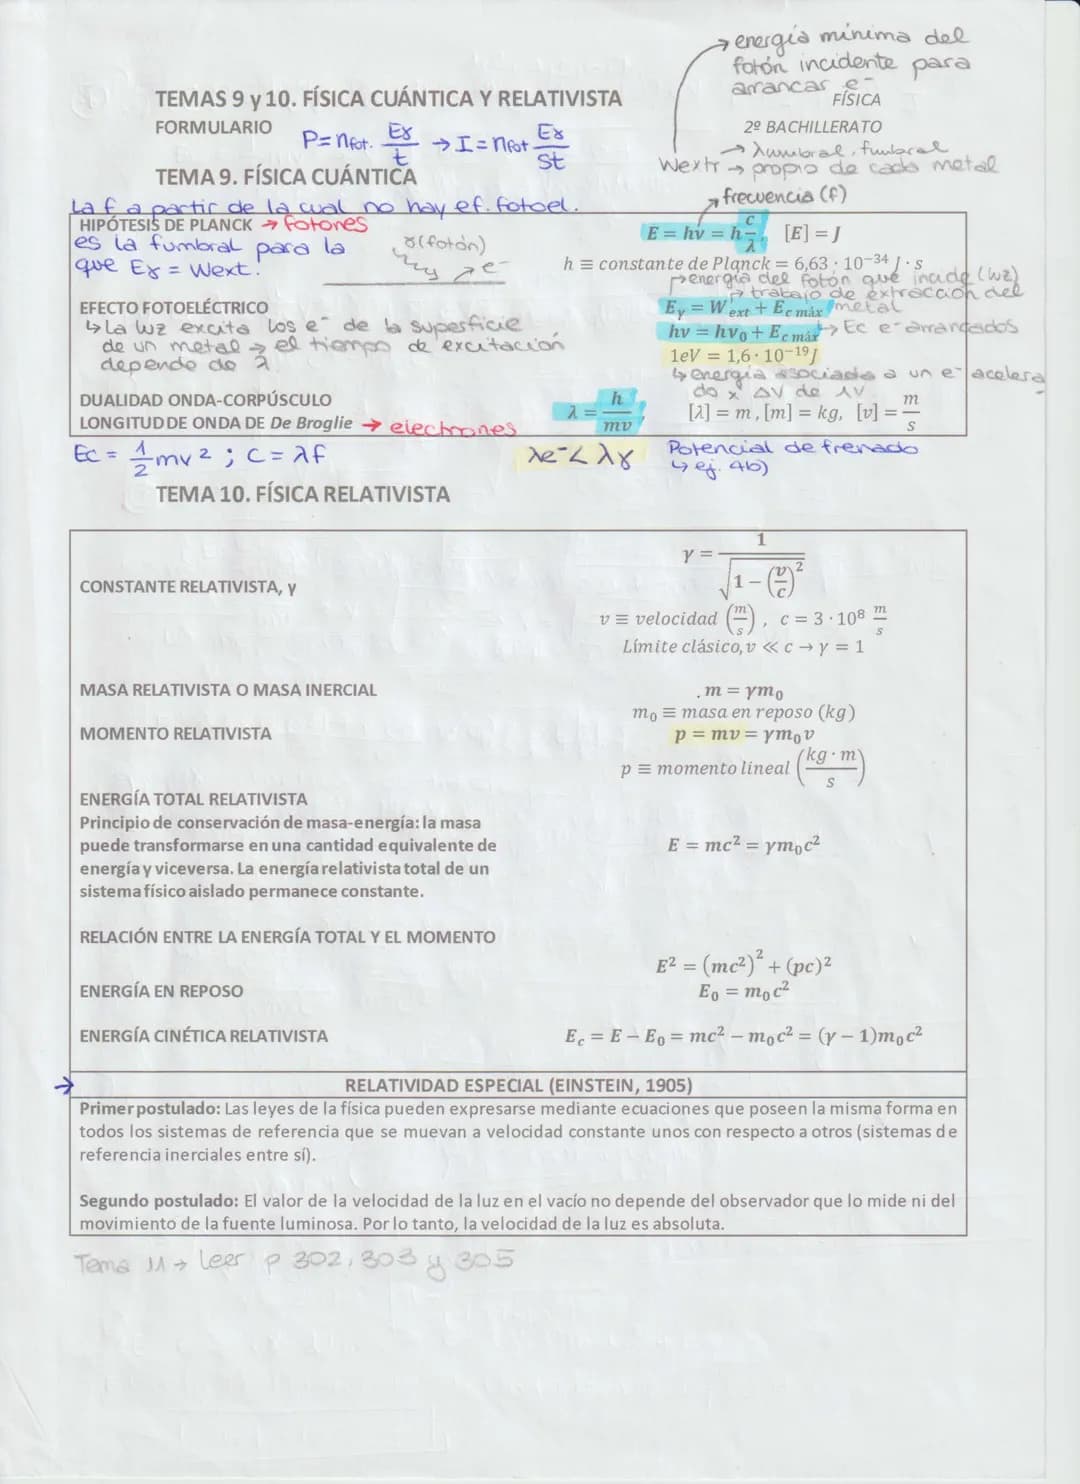 energía mínima del
fotón incidente para
arrancar e⁻
TEMAS 9 y 10. FÍSICA CUÁNTICA Y RELATIVISTA
FÍSICA
FORMULARIO
2º BACHILLERATO
P = nfot. Eγ/t → I = nfot Eγ/St
→ λumbral, fumbral
Wextr → propio de cada metal
TEMA 9. FÍSICA CUÁNTICA
frecuencia (f)
La f a partir de la cual no hay ef. fotoel.
HIPÓTESIS DE PLANCK → fotones
E = hν = h c/λ, [E] = J
es la fumbral para la
γ(fotón)
e⁻
que Eγ = Wext.
h ≡ constante de Planck = 6,63 · 10⁻³⁴ J · s
energía del fotón que incide (luz)
trabajo de extracción del
metal
EFECTO FOTOELÉCTRICO
Eγ = Wext + Ec máx
↳ La luz excita los e⁻ de la superficie
hν = hν₀ + Ec máx → Ec e⁻ arrancados
de un metal → el tiempo de excitación
1eV = 1,6 · 10⁻¹⁹ J
depende de λ
↳ energía asociada a un e⁻ acelera
do x ΔV de 1V
DUALIDAD ONDA-CORPÚSCULO
LONGITUD DE ONDA DE De Broglie → electrones
λ = h/mv, [λ] = m, [m] = kg, [v] = m/s
Ec = 1/2 mv² ; C = λf
λe⁻ < λγ
Potencial de frenado
↳ ej. 4b)
TEMA 10. FÍSICA RELATIVISTA
CONSTANTE RELATIVISTA, γ
γ = 1/√(1 − (v/c)²)
v ≡ velocidad (m/s), c = 3 · 10⁸ m/s
Límite clásico, v ≪ c → γ = 1
MASA RELATIVISTA O MASA INERCIAL
m = γm₀
m₀ ≡ masa en reposo (kg)
MOMENTO RELATIVISTA
p = mv = γm₀v
p ≡ momento lineal (kg · m/s)
ENERGÍA TOTAL RELATIVISTA
Principio de conservación de masa-energía: la masa
puede transformarse en una cantidad equivalente de
energía y viceversa. La energía relativista total de un
sistema físico aislado permanece constante.
E = mc² = γm₀c²
RELACIÓN ENTRE LA ENERGÍA TOTAL Y EL MOMENTO
E² = (mc²)² + (pc)²
ENERGÍA EN REPOSO
E₀ = m₀c²
ENERGÍA CINÉTICA RELATIVISTA
Ec = E − E₀ = mc² − m₀c² = (γ − 1)m₀c²
→ RELATIVIDAD ESPECIAL (EINSTEIN, 1905)
Primer postulado: Las leyes de la física pueden expresarse mediante ecuaciones que poseen la misma forma en
todos los sistemas de referencia que se muevan a velocidad constante unos con respecto a otros (sistemas de
referencia inerciales entre sí).
Segundo postulado: El valor de la velocidad de la luz en el vacío no depende del observador que lo mide ni del
movimiento de la fuente luminosa. Por lo tanto, la velocidad de la luz es absoluta.
Tema 11 → leer p 302, 303 y 305